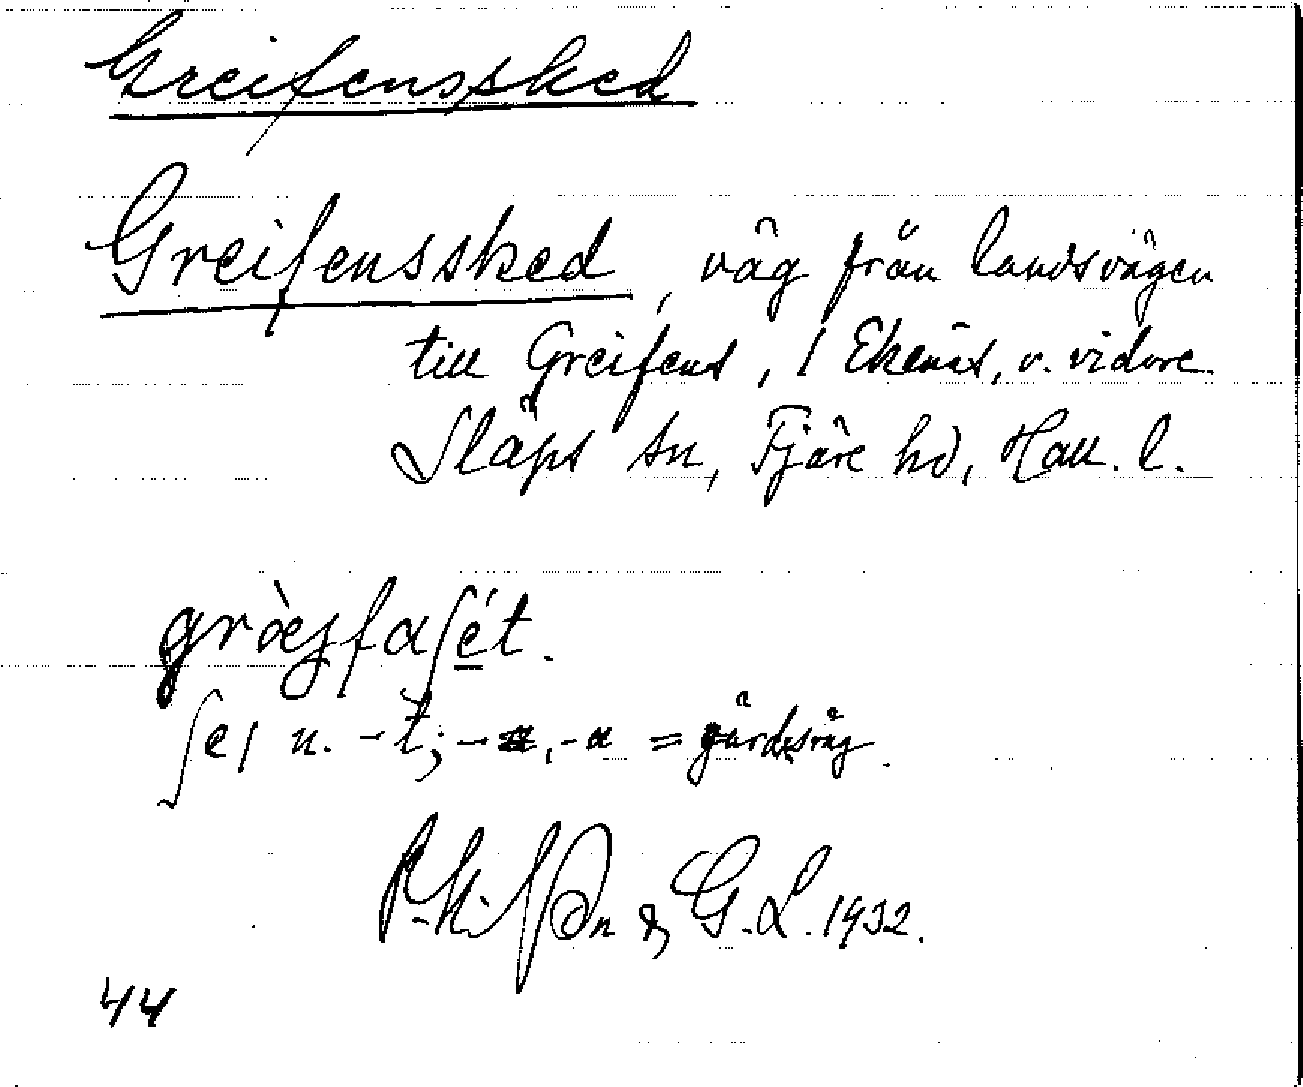 Greifenssked
Greifenssked, väg från landsvägen
till Greifens, / Ekenäs, v. vidare
Släps sn, Fjäre hd, Hall. l.
græ̀ʒfaʃét.
ʃe/ n. -t; -a = gårdsväg.
& G. L. 1932.
44